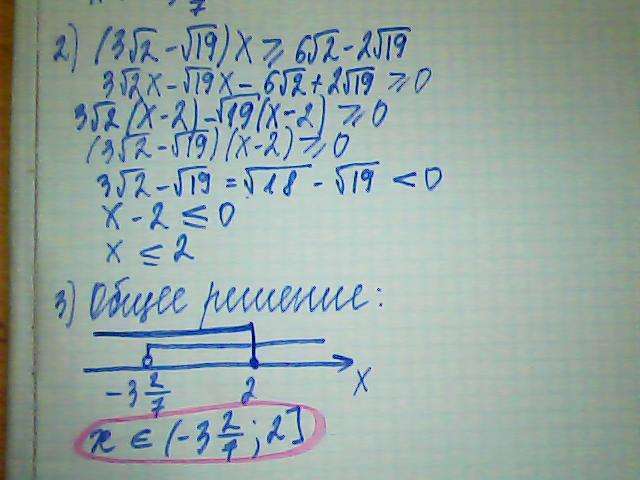 2) (3√2 - √19)x ≥ 6√2 - 2√19
3√2x - √19x - 6√2 + 2√19 ≥ 0
3√2(x-2) - √19(x-2) ≥ 0
(3√2 - √19)(x-2) ≥ 0
3√2 - √19 = √18 - √19 < 0
x - 2 ≤ 0
x ≤ 2
3) Общее решение:
-3 2/7 2 x
x ∈ (-3 2/7; 2]